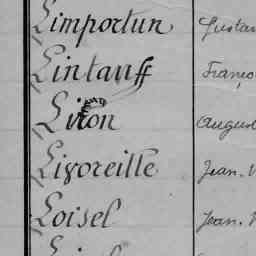 Limportun Gustav
Lintanff Franço
Liron August
Livoreille Jean. M
Loisel Jean. M